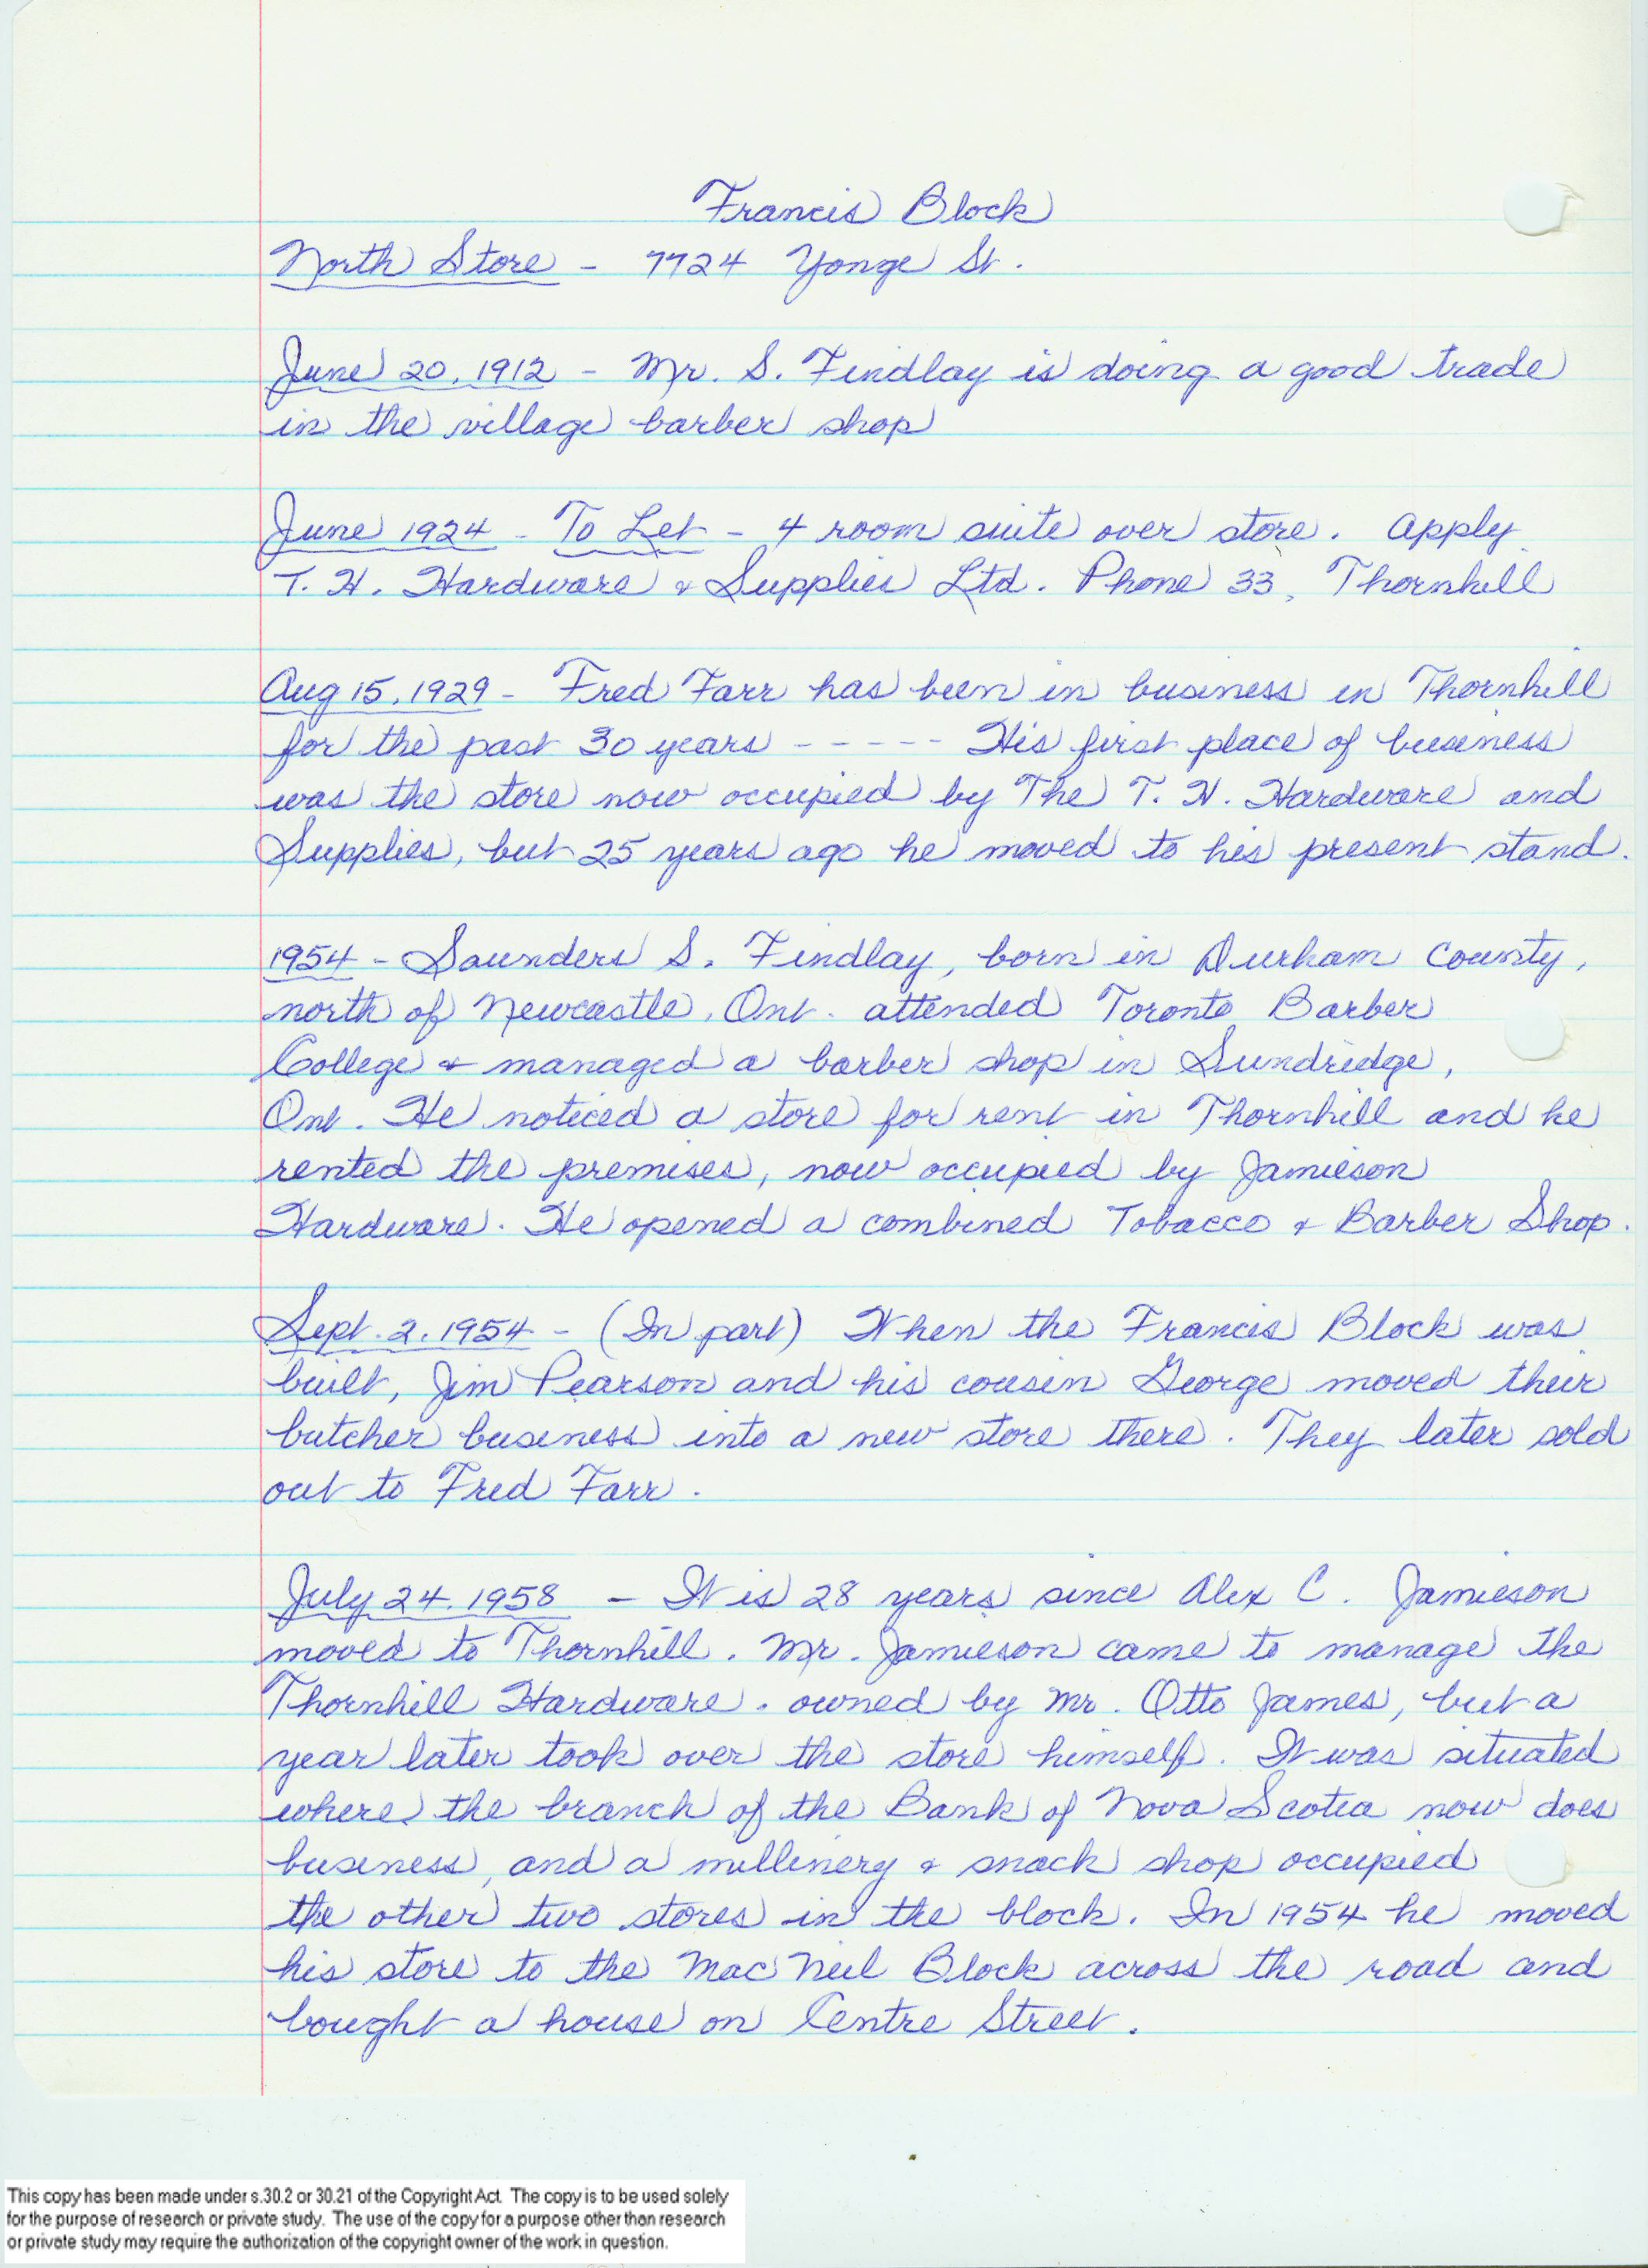 Francis Block
North Store - 7724 Yonge St.
June 20, 1912 - Mr. S. Findlay is doing a good trade
in the village barber shop
June 1924 - To Let - 4 room suite over store. Apply
T. H. Hardware & Supplies Ltd. Phone 33, Thornhill
Aug 15, 1929 - Fred Farr has been in business in Thornhill
for the past 30 years - - - - - His first place of business
was the store now occupied by The T. H. Hardware and
Supplies, but 25 years ago he moved to his present stand.
1954 - Saunders S. Findlay, born in Durham County,
north of Newcastle, Ont. attended Toronto Barber
College & managed a barber shop in Sundridge,
Ont. He noticed a store for rent in Thornhill and he
rented the premises, now occupied by Jamieson
Hardware. He opened a combined Tobacco & Barber Shop.
Sept. 2. 1954 - (In part) When the Francis Block was
built, Jim Pearson and his cousin George moved their
butcher business into a new store there. They later sold
out to Fred Farr.
July 24. 1958 - It is 28 years since Alex C. Jamieson
moved to Thornhill. Mr. Jamieson came to manage the
Thornhill Hardware. owned by Mr. Otto James, but a
year later took over the store himself. It was situated
where the branch of the Bank of Nova Scotia now does
business, and a millinery & snack shop occupied
the other two stores in the block. In 1954 he moved
his store to the MacNeil Block across the road and
bought a house on Centre Street.
This copy has been made under s.30.2 or 30.21 of the Copyright Act. The copy is to be used solely
for the purpose of research or private study. The use of the copy for a purpose other than research
or private study may require the authorization of the copyright owner of the work in question.